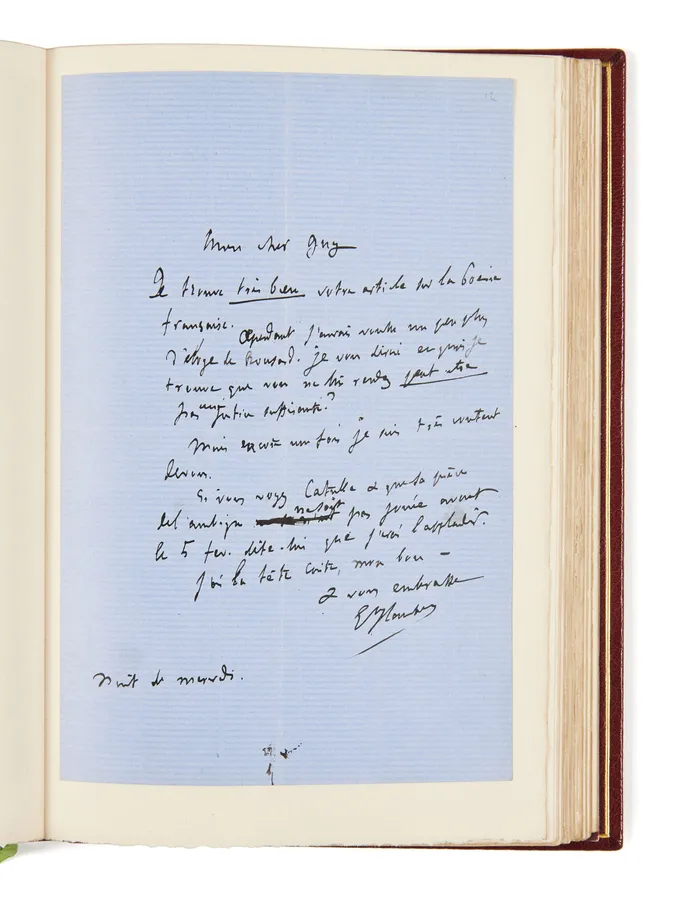 12
Mon cher Guy
Je trouve très bien votre article sur la Poésie
française. Cependant j'aurais voulu un peu plus
d'éloge de Ronsard. je vous dirai en quoi je
trouve que vous ne lui rendez peut-être
pas une justice suffisante.
Mais encore une fois je suis très content
de vous.
Si vous voyez Catulle & que sa pièce
de l'ambigu ne soit pas jouée avant
le 5 fev. dites-lui que j'irai l'applaudir.
J'ai la tête cuite, mon bon –
& vous embrasse
G Flaubert
Nuit de mercredi.